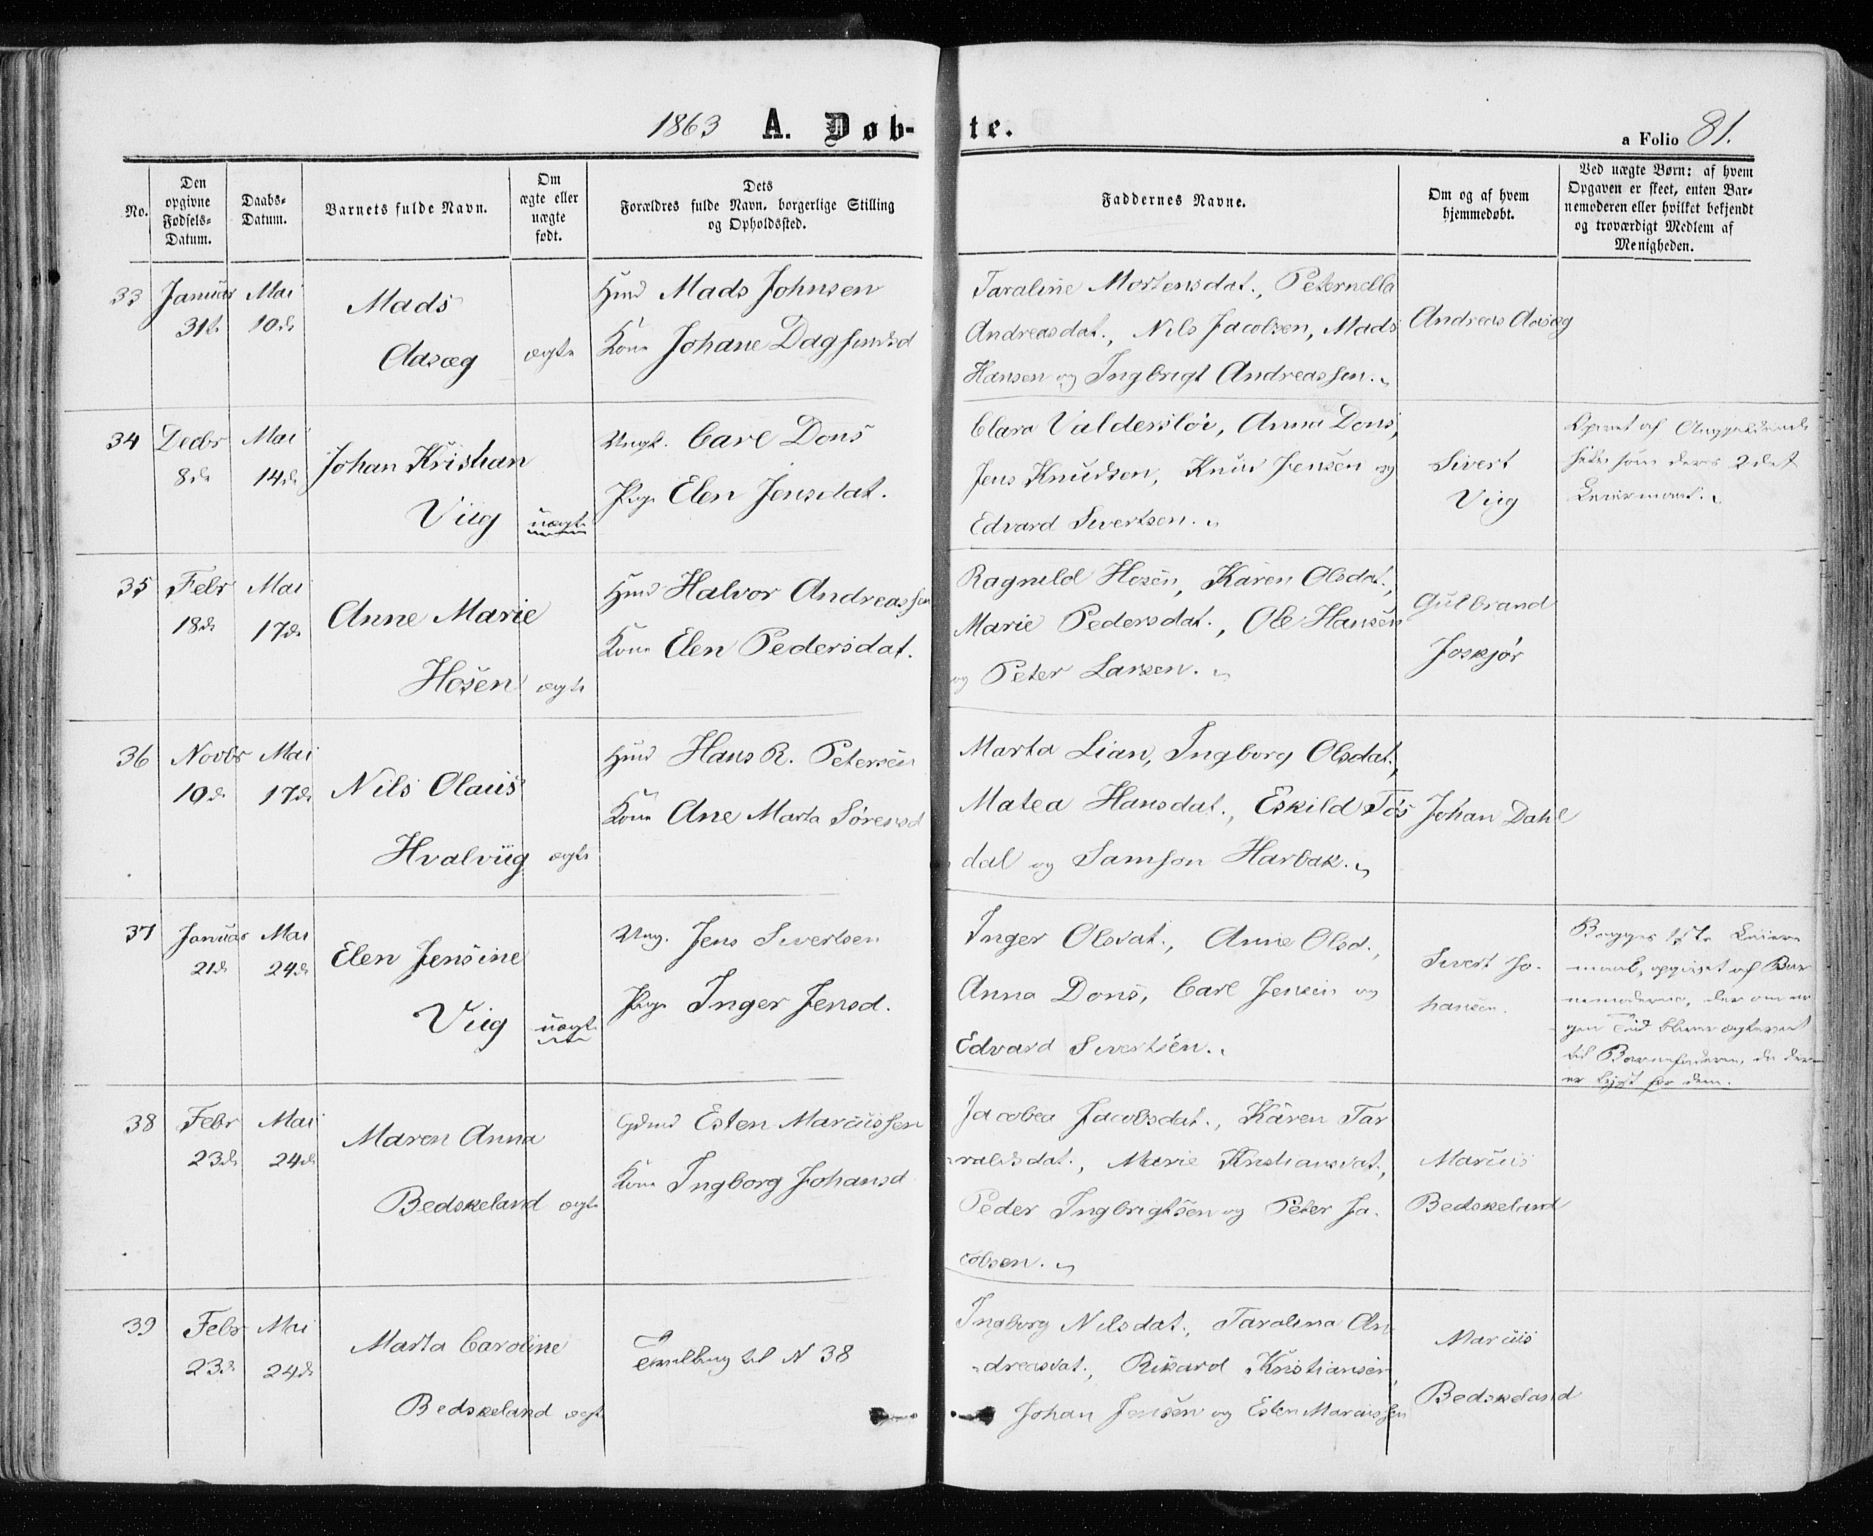 1863 A. Døb- te. a Folio 81.
No.
Den opgivne Fødsels-Datum.
Daabs-Datum.
Barnets fulde Navn.
Om ægte eller uægte født.
Dets Forældres fulde Navn, borgerlige Stilling og Opholdssted.
Faddernes Navne.
Om og af hvem hjemmedøbt.
Ved uægte Børn: af hvem Opgaven er skeet, enten Barnemoderen eller hvilket bekjendt og troværdigt Medlem af Menigheden.
33 Januar Mai Mads Hmd Mads Johnsen Taraline Mortensdat., Peternella
31te 10de Aasæg ægte Kone Johane Dagfinnsd Andreasdat., Nils Jacobsen, Mads Andreas Aasæg
Hansen og Ingbrigt Andreassen.
34 Decbr Mai Johan Kristian Ungk. Carl Dons Clara Valdersløv, Anna Dons,
8de 14de Viig uægte Pige Elen Jensdat. Jens Knudsen, Knud Jensen og Sivert af
Edvard Sivertsen. Viig som deres 2det
Leiermaal.
35 Febr Mai Anne Marie Hmd Halvor Andreassen Ragnild Hosen, Karen Olsdat.,
18de 17de Kone Elen Pedersdat. Marie Pedersdat., Ole Hansen Gulbrand
Hosen ægte og Peter Larsen. Joskjør
36 Novbr Mai Nils Olaus Hmd Hans R. Petersen Marta Lian, Ingborg Olsdat.,
19de 17de Kone Ane Marta Sørensd Matea Hansdat., Eskild Tøs Johan Dahl
Hvalviig ægte dal og Samson Harbak.
37 Januar Mai Elen Jensine Ung. Jens Sivertsen Inger Olsdat., Anne Olsd., Begges 1ste Leier
21de 24de Viig uægte Pige Inger Jensd. Anna Dons, Carl Jensen og Sivert Jo- maal, opgivet af Bar
Edvard Sivertsen. hansen. nemoderen, der om no
gen Tid bliver ægteviet
til Barnefaderen, da der
er lyst for dem.
38 Febr Mai Maren Anna Gdmd Esten Marcussen Jacobea Jacobsdat., Karen Tar
23de 24de Kone Ingborg Johansd raldsdat., Marie Kristiansdat., Marcus
Bedskeland ægte Peder Ingbrigtsen og Peter Ja- Bedskeland
cobsen.
39 Febr Mai Marta Caroline Tvilling til N 38 Ingborg Nilsdat., Taralina An
23de 24de dreasdat., Rikard Kristiansen, Marcus
Bedskeland ægte Johan Jensen og Esten Marcussen Bedskeland